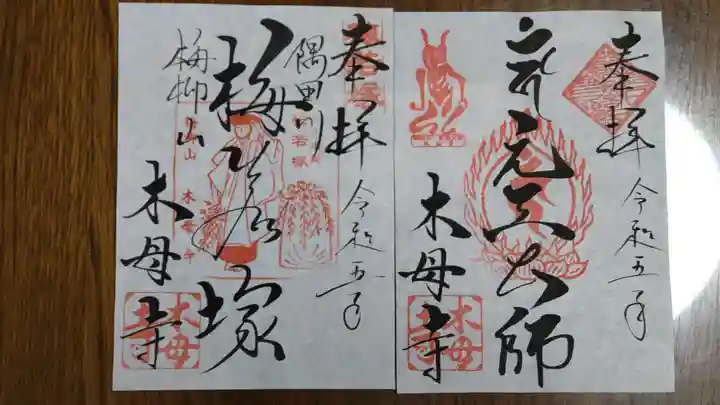 奉拝
令和五年
元三大師
木母寺
木母寺
奉拝
令和五年
隅田川
梅若塚
梅柳山
木母寺
木母寺